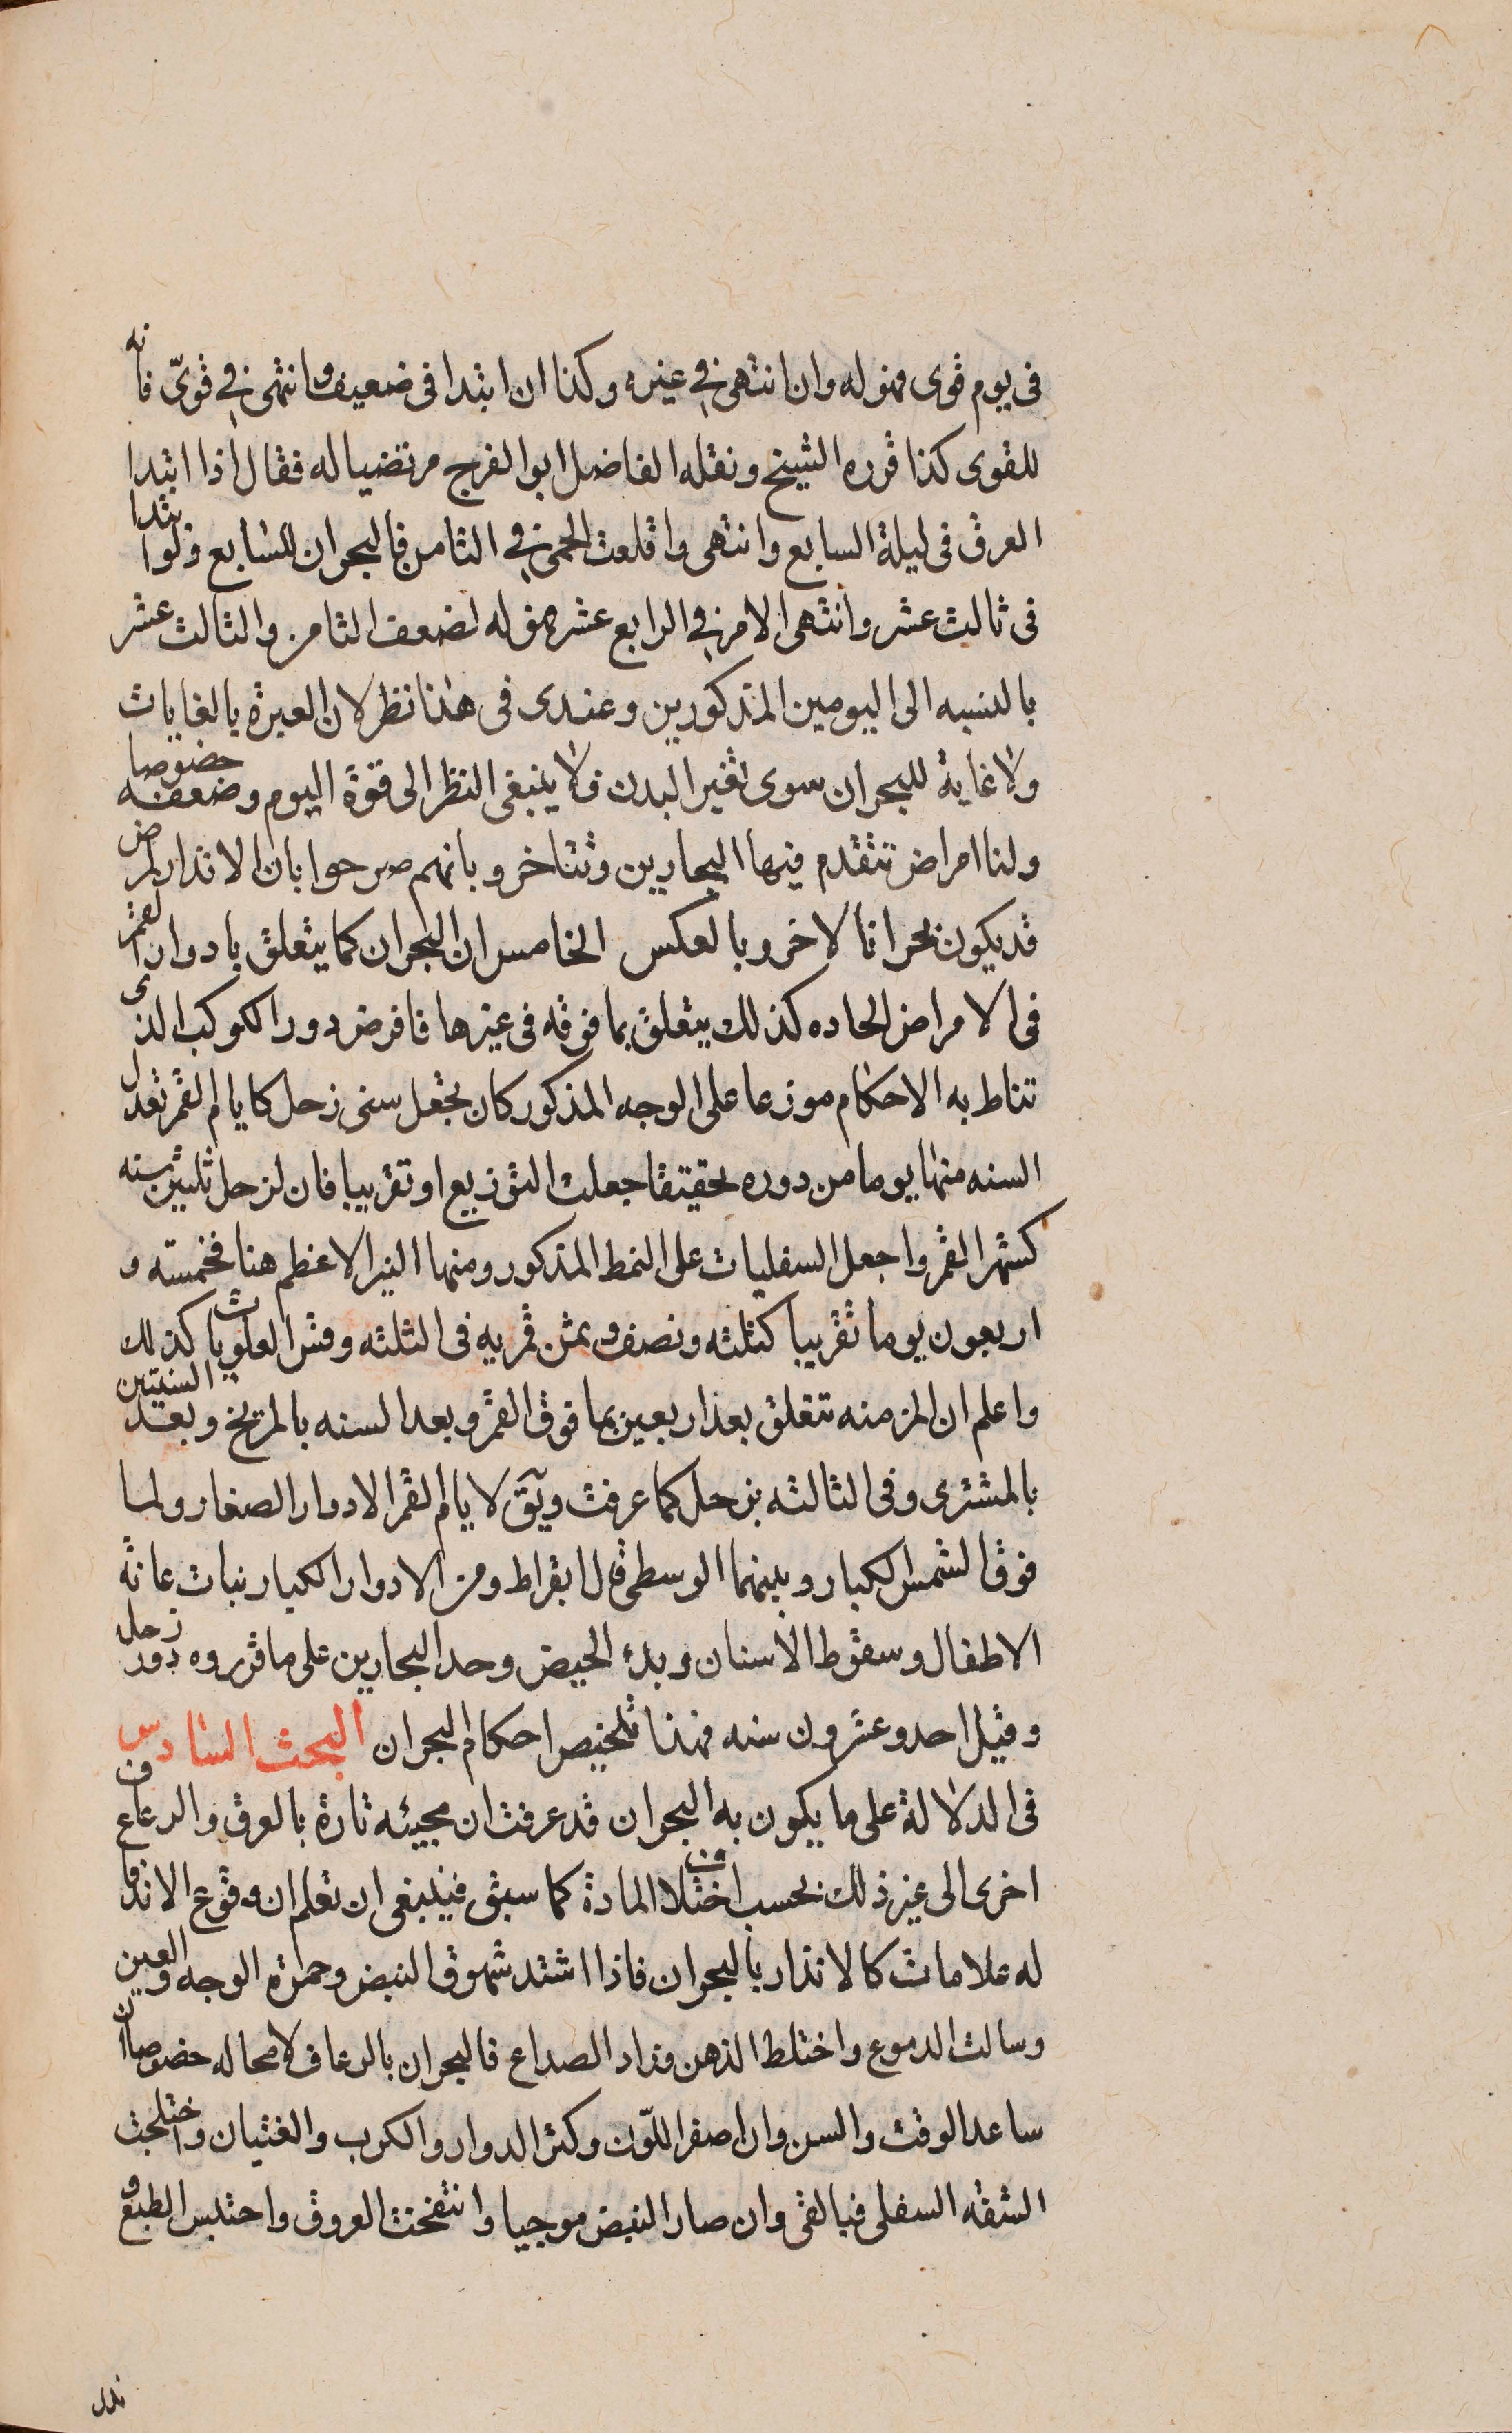 فى يوم قوى فهو له وان انتهى فى غيره وكذا ان ابتدا فى ضعيف وانتهى فى قوىّ فانه
للقوى كذا قرره الشيخ ونقله الفاضل ابو الفرج مرتضيا له فقال اذا ابتدا
العرق فى ليلة السابع وانتهى واقلعت الحمى فى الثامن فالبحران للسابع ولو ابتدا
فى ثالث عشر وانتهى الامر فى الرابع عشر فهو له لضعف الثامن والثالث عشر
بالنسبه الى اليومين المذكورين وعندى فى هذا نظر لان العبرة بالغايات
ولا غاية للبحران سوى تغير البدن فلا ينبغى النظر الى قوة اليوم وضعفه خصوصا
ولنا امراض تتقدم فيها البحارين وتتاخر وبانهم صرحوا بان الانذار لمرض
قد يكون بحرانا لاخر وبالعكس الخامس ان البحران كما يتعلق بادوار القمر
فى الامراض الحاده كذلك يتعلق بما فوقه فى غيرها فافرض دور الكوكب الذى
تناط به الاحكام موزعا على الوجه المذكور كان تجعل سنى زحل كايام القمر تعدل
السنه منها يوما من دوره تحقيقا جعلت التوزيع او تقريبا فان لزحل ثلثين سنه
كشهر القمر واجعل السفليات على النمط المذكور ومنها النير الاعظم هنا فخمسته و
اربعون يوما تقريبا كثلثه ونصف وثمن قمريه فى الثلثه وقس العلويات كذلك
واعلم ان المزمنه تتعلق بعد اربعين بما فوق القمر وبعد السنه بالمريخ وبعد السنتين
بالمشترى وفى الثالثه بزحل كما عرفت ويق لايام القمر الادوار الصغار ولما
فوق الشمس الكبار وبينهما الوسطى قال ابقراط ومن الادوار الكبار نبات عانة
الاطفال وسقوط الاسنان وبدء الحيض وحد البحارين على ما قرروه دور زحل
وقيل احد وعشرون سنه فهذا تلخيص احكام البحران البحث السادس
فى الدلالة على ما يكون به البحران قد عرفت ان مجيئه تارة بالعرق والرعاف و
اخرى الى غير ذلك بحسب اختلاف المادة كما سبق فينبغى ان تعلم ان وقوع الاندفاع
له علامات كالانذار بالبحران فاذا اشتد شهوق النبض وحمرة الوجه والعين
وسالت الدموع واختلط الذهن وزاد الصداع فالبحران بالرعاف لا محاله خصوصا ان
ساعد الوقت والسن وان اصفر اللون وكثر الدوار والكرب والغثيان واختلجت
الشفه السفلى فبالقى وان صار النبض موجيا وانتفخت العروق واحتبس الطبع و